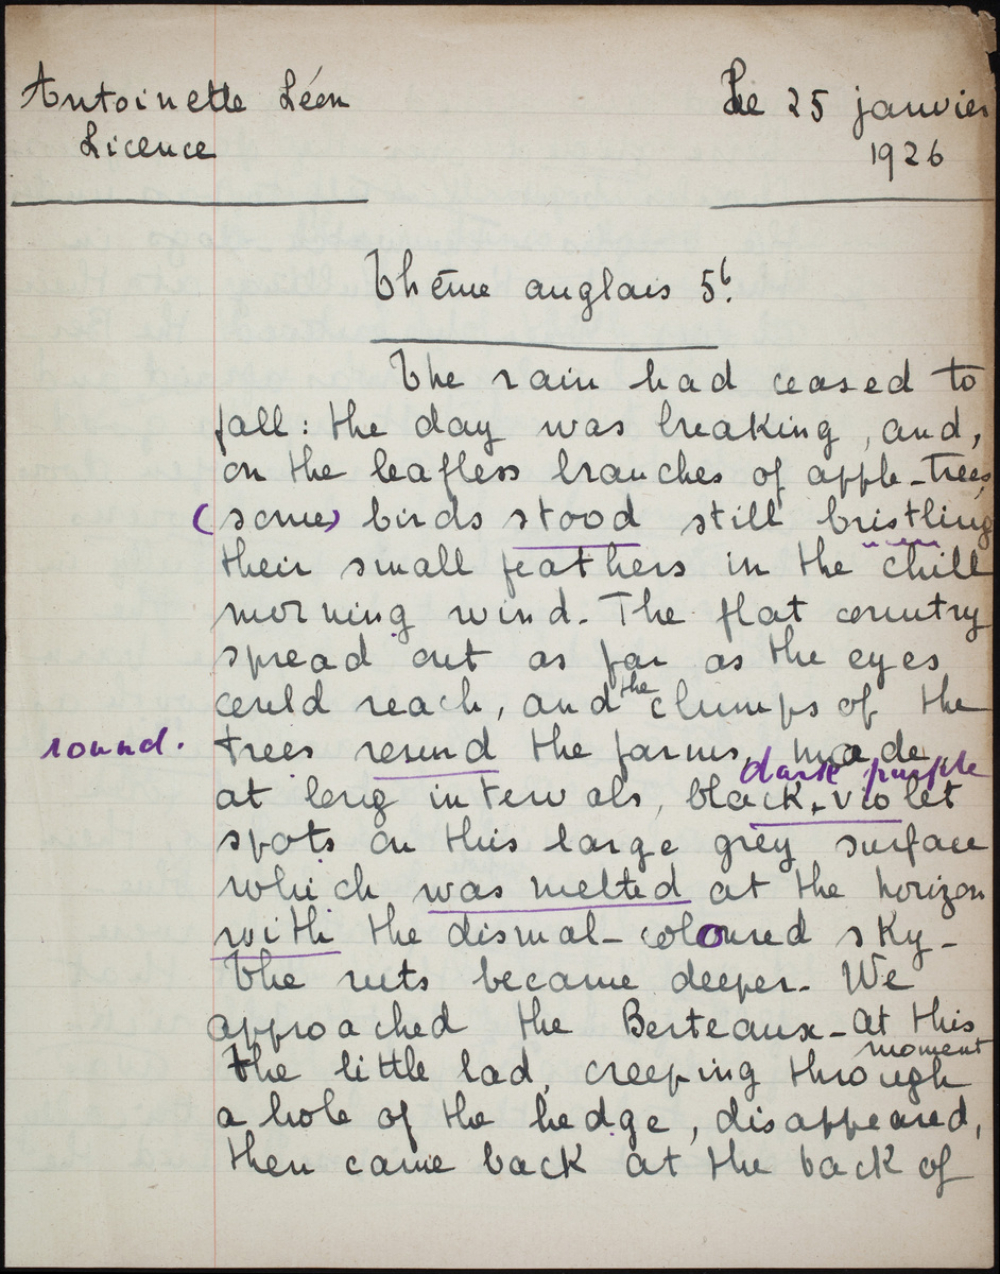 Antoinette Léon
Le 25 janvier
Licence
1926
Thême anglais 5e.
The rain had ceased to
fall : the day was breaking, and,
on the leafless branches of apple-trees,
(some) birds stood still bristling
their small feathers in the chill
morning wind. The flat country
spread out as far as the eyes
could reach, and the clumps of the
round.
trees round the farms, made,
dark purple
at long intervals, black-violet
spots on this large grey surface
which was melted at the horizon
with the dismal-coloured sky-
The ruts became deeper. We
approached the Berteaux-At this
moment
the little lad, creeping through
a hole of the hedge, disappeared,
then came back at the back of